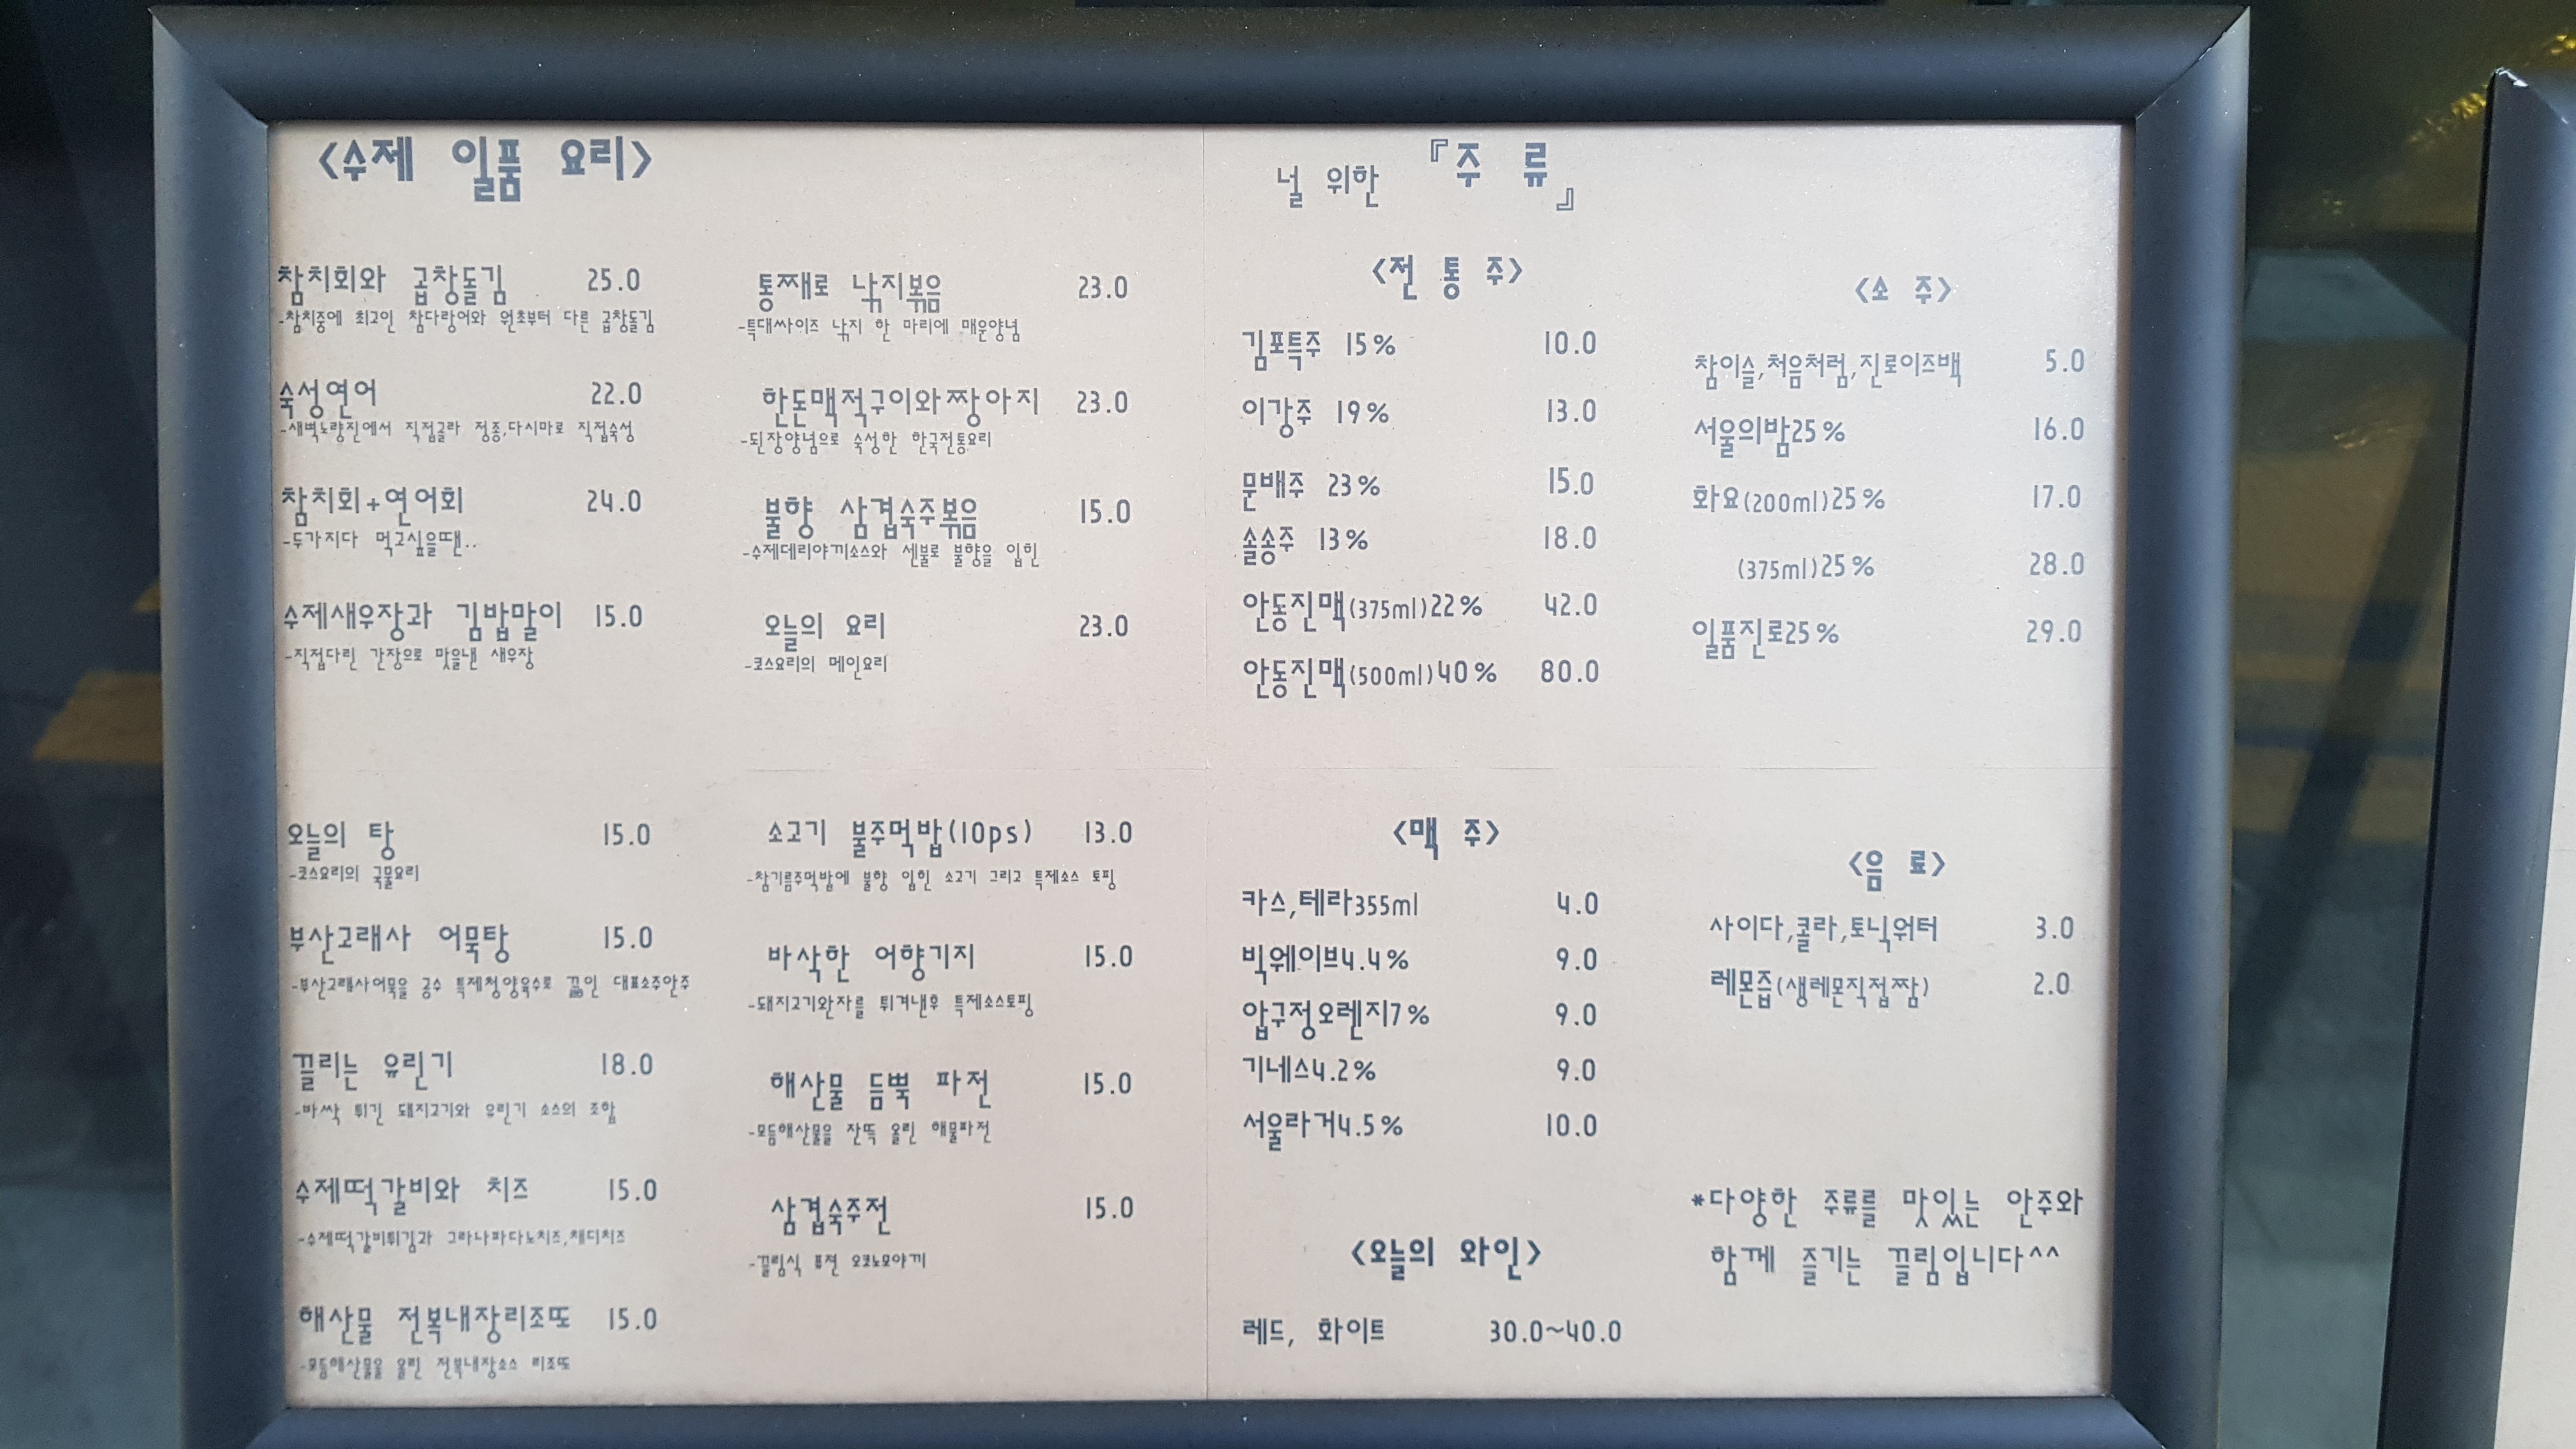 <수제 일품 요리>
참치회와 곱창돌김 25.0
-참치중에 최고인 참다랑어와 원초부터 다른 곱창돌김
숙성연어 22.0
-새벽노량진에서 직접골라 정종,다시마로 직접숙성
참치회+연어회 24.0
-두가지다 먹고싶을땐..
수제새우장과 김밥말이 15.0
-직접다린 간장으로 맛을낸 새우장
통째로 낚지볶음 23.0
-특대싸이즈 낚지 한 마리에 매운양념
한돈맥적구이와짱아지 23.0
-된장양념으로 숙성한 한국전통요리
불향 삼겹숙주볶음 15.0
-수제데리야끼소스와 센불로 불향을 입힌
오늘의 요리 23.0
-코스요리의 메인요리
오늘의 탕 15.0
-코스요리의 국물요리
부산고래사 어묵탕 15.0
-부산고래사어묵을 공수 특제청양육수로 끓인 대표소주안주
끌리는 유린기 18.0
-바싹 튀긴 돼지고기와 유린기 소스의 조합
수제떡갈비와 치즈 15.0
-수제떡갈비튀김과 그라나파다노치즈,채디치즈
해산물 전복내장리조또 15.0
-모듬해산물을 올린 전복내장소스 리조또
소고기 불주먹밥(10ps) 13.0
-참기름주먹밥에 불향 입힌 소고기 그리고 특제소스 토핑
바삭한 어향기지 15.0
-돼지고기완자를 튀겨낸후 특제소스토핑
해산물 듬뿍 파전 15.0
-모듬해산물을 잔뜩 올린 해물파전
삼겹숙주전 15.0
-끌림식 퓨젼 오코노모야끼
널 위한 『주 류』
<전 통 주>
김포특주 15% 10.0
이강주 19% 13.0
문배주 23% 15.0
솔송주 13% 18.0
안동진맥(375ml)22% 42.0
안동진맥(500ml)40% 80.0
<소 주>
참이슬,처음처럼,진로이즈백 5.0
서울의밤25% 16.0
화요(200ml)25% 17.0
(375ml)25% 28.0
일품진로25% 29.0
<맥 주>
카스,테라355ml 4.0
빅웨이브4.4% 9.0
압구정오렌지7% 9.0
기네스4.2% 9.0
서울라거4.5% 10.0
<오늘의 와인>
레드, 화이트 30.0~40.0
<음 료>
사이다,콜라,토닉워터 3.0
레몬즙(생레몬직접짬) 2.0
*다양한 주류를 맛있는 안주와
함께 즐기는 끌림입니다^^